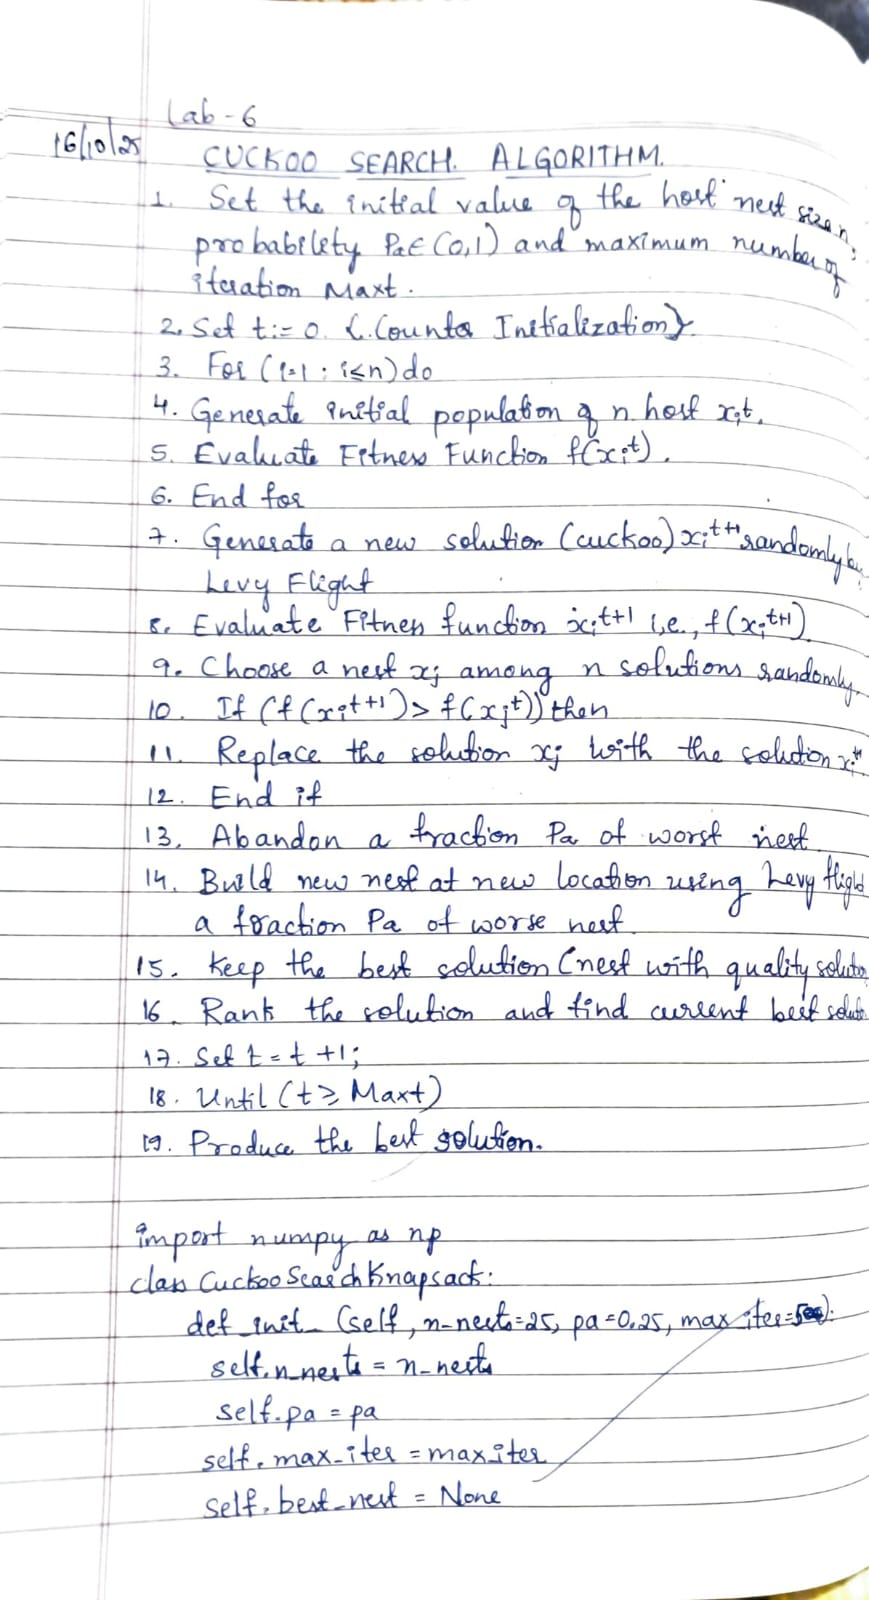 Lab - 6
16/10/25
CUCKOO SEARCH. ALGORITHM.
1. Set the initial value of the host nest size n,
probability Pa∈(0,1) and maximum number of
iteration Maxt.
2. Set t:= 0. {.Counter Initialization}.
3. For (i=1 : i≤n) do
4. Generate initial population of n host xit.
5. Evaluate Fitness Function f(xit).
6. End for
7. Generate a new solution (cuckoo) xit+1 randomly by
Levy Flight
8. Evaluate Fitness function xit+1 i,e., f(xit+1)
9. Choose a nest xj among n solutions randomly.
10. If (f(xit+1) > f(xjt)) then
11. Replace the solution xj with the solution xit+1
12. End if
13. Abandon a fraction Pa of worst nest
14. Build new nest at new location using Levy flight
a fraction Pa of worse nest
15. Keep the best solution (nest with quality solution
16. Rank the solution and find current best solut.
17. Set t = t +1;
18. Until (t ≥ Maxt)
19. Produce the best solution.
import numpy as np
class CuckooSearchKnapsack:
def _init_ (self, n-nests=25, pa=0.25, max_iter=500):
self.n_nests = n-nests
self.pa = pa
self.max-iter = max_iter
self.best-nest = None